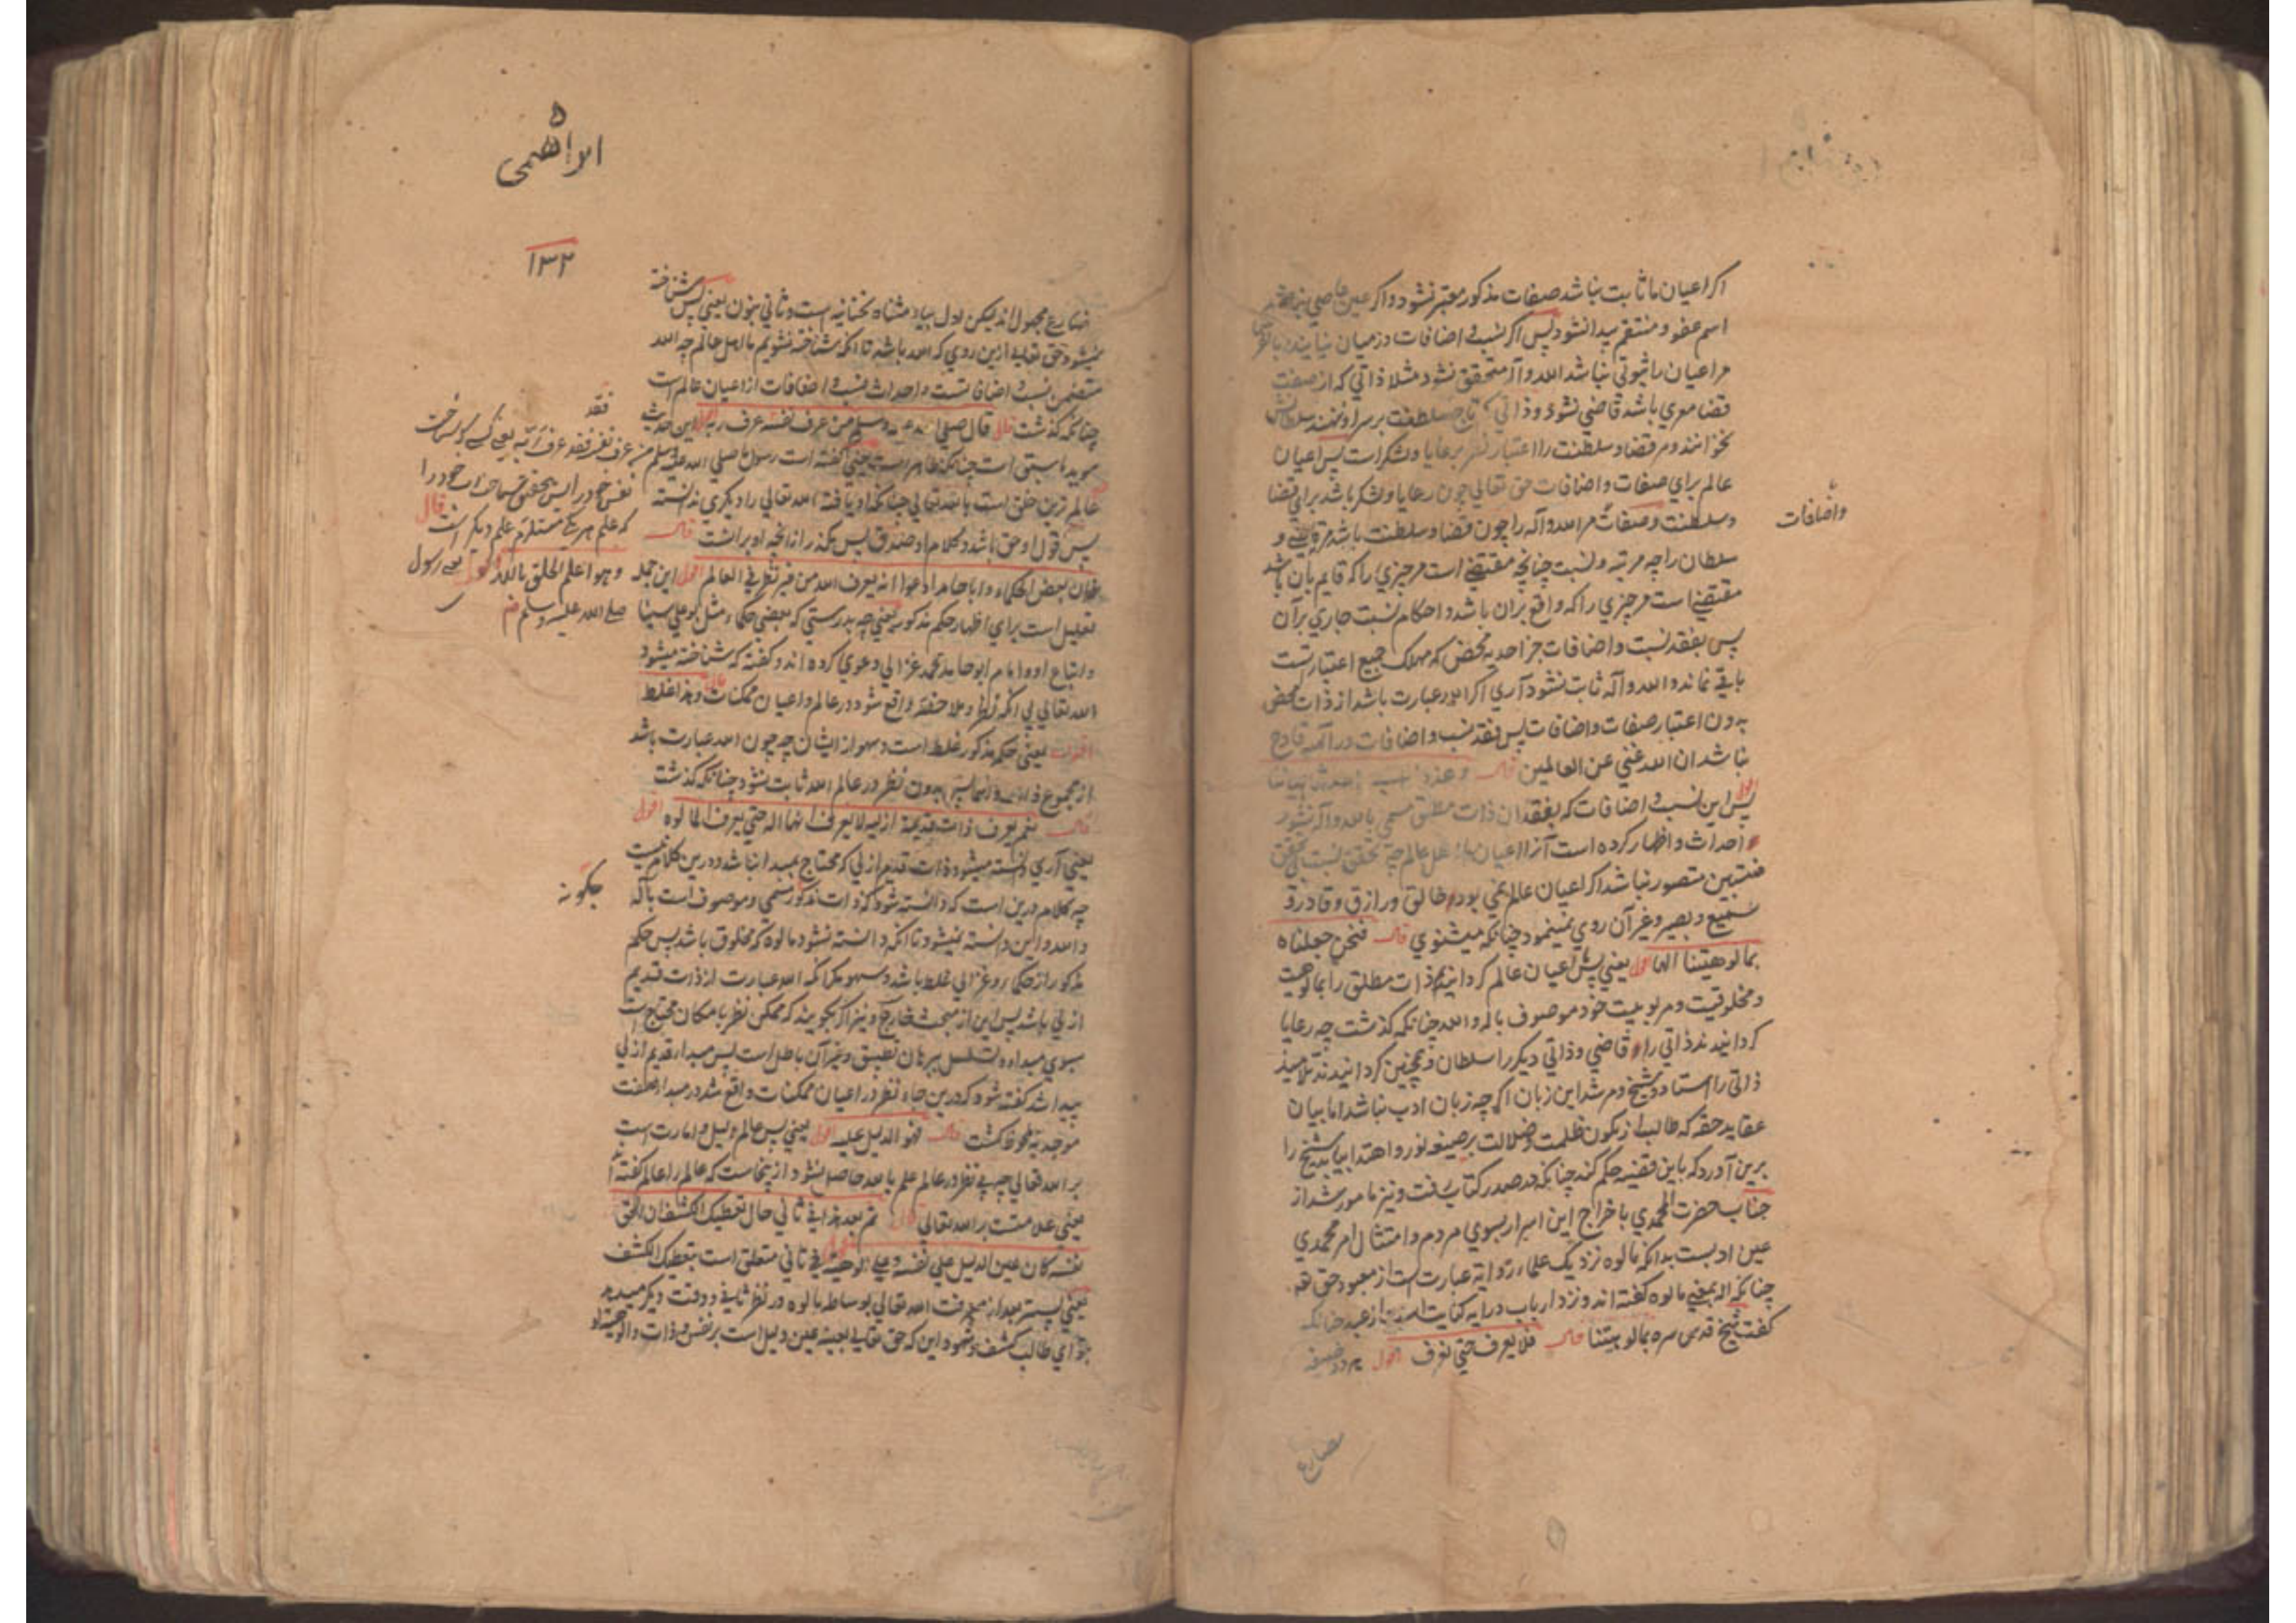 اگر اعیان ما ثابت نباشد صفات مذکور معتبر نشود و اگر عین عاصی نباشد
اسم عفو و منتقم پیدا نشود پس اگر نسب و اضافات در میان نیایند
مر اعیان را ثبوتی نباشد الله و آله متحقق نشود مثلا ذاتی که از صفت
قضا معری باشد قاضی نشود و ذاتی که تاج سلطنت بر سر او ننهند سلطانش
نخوانند و مر قضا و سلطنت را اعتبار نظر برعایا و لشکر است پس اعیان
عالم برای صفات و اضافات حق تعالی چون رعایا و لشکر باشد برای قضا
و سلطنت و صفات مر الله و آله را چون قضا و سلطنت باشد مر قاضی و
واضافات
سلطان را چه مرتبه و نسبت چنانچه مقتضی است مر چیزی را که قایم بآن باشد
مقتضی است مر چیزی را که واقع بران باشد و احکام نسبت جاری بر آن
پس بفقد نسبت و اضافات جز احدیه محض که مهلک جمیع اعتبار است
باقی نماند و الله و آله ثابت نشود آری اگر الله عبارت باشد از ذات محض
بدون اعتبار صفات و اضافات پس فقد نسب و اضافات در قادح
نباشد ان الله غنی عن العالمین قال
پس این نسب و اضافات که بفقدان ذات مطلق مسمی بالله و آله نشود
احداث و اظهار کرده است آنرا اعیان ما اهل عالم چه تحقق نسبت بی تحقق
منتسبین متصور نباشد اگر اعیان عالم نمی بود خالق و رازق و قادر و
سمیع و بصیر و غیر آن روی نمینمود چنانکه میشنوی قال فنحن جعلناه
بمالوهیتنا الها اقول یعنی پس اعیان عالم گردانیم ذات مطلق را بمالوهیت
و مخلوقیت و مربوبیت خود موصوف باله و الله چنانکه گذشت چه رعایا
گردانیدند ذاتی را قاضی و ذاتی دیگر را سلطان و همچنین گردانیدند تلامیذ
ذاتی را استاد و شیخ و مرشد این زبان اگرچه زبان ادب نباشد اما بیان
عقاید حقه که طالب از مکون ظلمت و ضلالت بر صیغه نور و اهتدا بیاید شیخ را
برین آورد که باین قضیه حکم کند چنانکه در صدر کتاب گفت و نیز مامور شد از
جناب حضرت المحمدی باخراج این اسرار بسوی مردم و امتثال امر محمدی
عین ادبست بدانکه مالوه نزدیک علماء روایه عبارت است از معبود حق
چنانکه اله بمعنی مالوه گفته اند و نزد ارباب درایه کنایت است از عبد چنانکه
گفت شیخ قدس سره بمالوهیتنا قال فلا یعرف حتی نعرف اقول هر دو صیغه
مضارع
ابراهیمی
۱۳۲
مضارع مجهول اند لیکن اول بیاء مثناه تحتانیه است و ثانی بنون یعنی پس شناخته
نمیشود حق تعالی ازین روی که الله باشد تا آنکه شناخته نشویم ما اهل عالم چه الله
متضمن نسب و اضافاتست و احداث نسب و اضافات از اعیان عالم است
چنانکه گذشت قال قال صلی الله علیه وسلم من عرف نفسه عرف ربه اقول این حدیث
موید ما سبق است چنانکه ظاهر است یعنی گفته است رسول ما صلی الله علیه وسلم
فقد
من عرف نفسه فقد عرف ربه یعنی کسی که بشناخت
نفس خود را پس بتحقیق شناخت خود را
که علم هر یکی مستلزم علم دیگر است قال
وهو اعلم الخلق بالله اقول یعنی رسول
صلی الله علیه وسلم
عالم ترین خلق است بالله تعالی چنانکه او یافته الله تعالی را دیگری ندانسته
پس قول او حق باشد و کلام او صدق پس مگذر از آنچه او بر آنست قال
فان بعض الحکماء و ابا حامد ادعوا انه یعرف الله من غیر نظر فی العالم اقول این جمله
تعلیل است برای اظهار حکم مذکور یعنی چه بدرستی که بعضی حکماء مثل بو علی سینا
و اتباع او و امام ابو حامد محمد غزالی دعوی کرده اند و گفته که شناخته میشود
الله تعالی بی آنکه نظر و ملاحظه واقع شود در عالم و اعیان ممکنات قال و هذا غلط
اقول یعنی حکم مذکور غلط است و سهو از ایشان چه چون الله عبارت باشد
از مجموع ذات و اسما پس بدون نظر در عالم الله ثابت نشود چنانکه گذشت
قال نعم یعرف ذات قدیمة ازلیة لا یعرف انها اله حتی یعرف المالوه اقول
یعنی آری دانسته میشود ذات قدیم ازلی که محتاج بمبدا نباشد و درین کلام نیست
چه کلام درین است که دانسته شود که ذات مذکور مسمی و موصوف است باله
چگونه
و الله و این دانسته نمیشود تا آنکه دانسته نشود مالوه که مخلوق باشد پس حکم
مذکور از حکماء و غزالی غلط باشد و سهو مگر آنکه الله عبارت از ذات قدیم
ازلی باشد پس این از مبحث خارج و نیز اگر بگویند که ممکن نظر بامکان محتاج است
بسوی مبدا و تسلسل ببرهان تطبیق و غیر آن باطل است پس مبدا قدیم ازلی
پیدا شد گفته شود که درین جا نظر در اعیان ممکنات واقع شد و مبدا بصفت
موجدیه ملحوظ گشت قال فهو الدلیل علیه اقول یعنی پس عالم دلیل و امارت است
بر الله تعالی چه بی نظر در عالم علم بالله حاصل نشود از ینجاست که عالم را عالم گفته اند
یعنی علامتست بر الله تعالی قال ثم بعد هذا فی ثانی حال یعطیک الکشف ان الحق
نفسه کان عین الدلیل علی نفسه و علی الوهیته اقول فی ثانی متعلق است بیعطیک الکشف
یعنی پستر بعد از معرفت الله تعالی بوساطه مالوه در نظر ثانی و وقت دیگر میدهد
ترا ای طالب کشف و شهود این که حق تعالی بعینه عین دلیل است بر نفس و ذات و الوهیته او